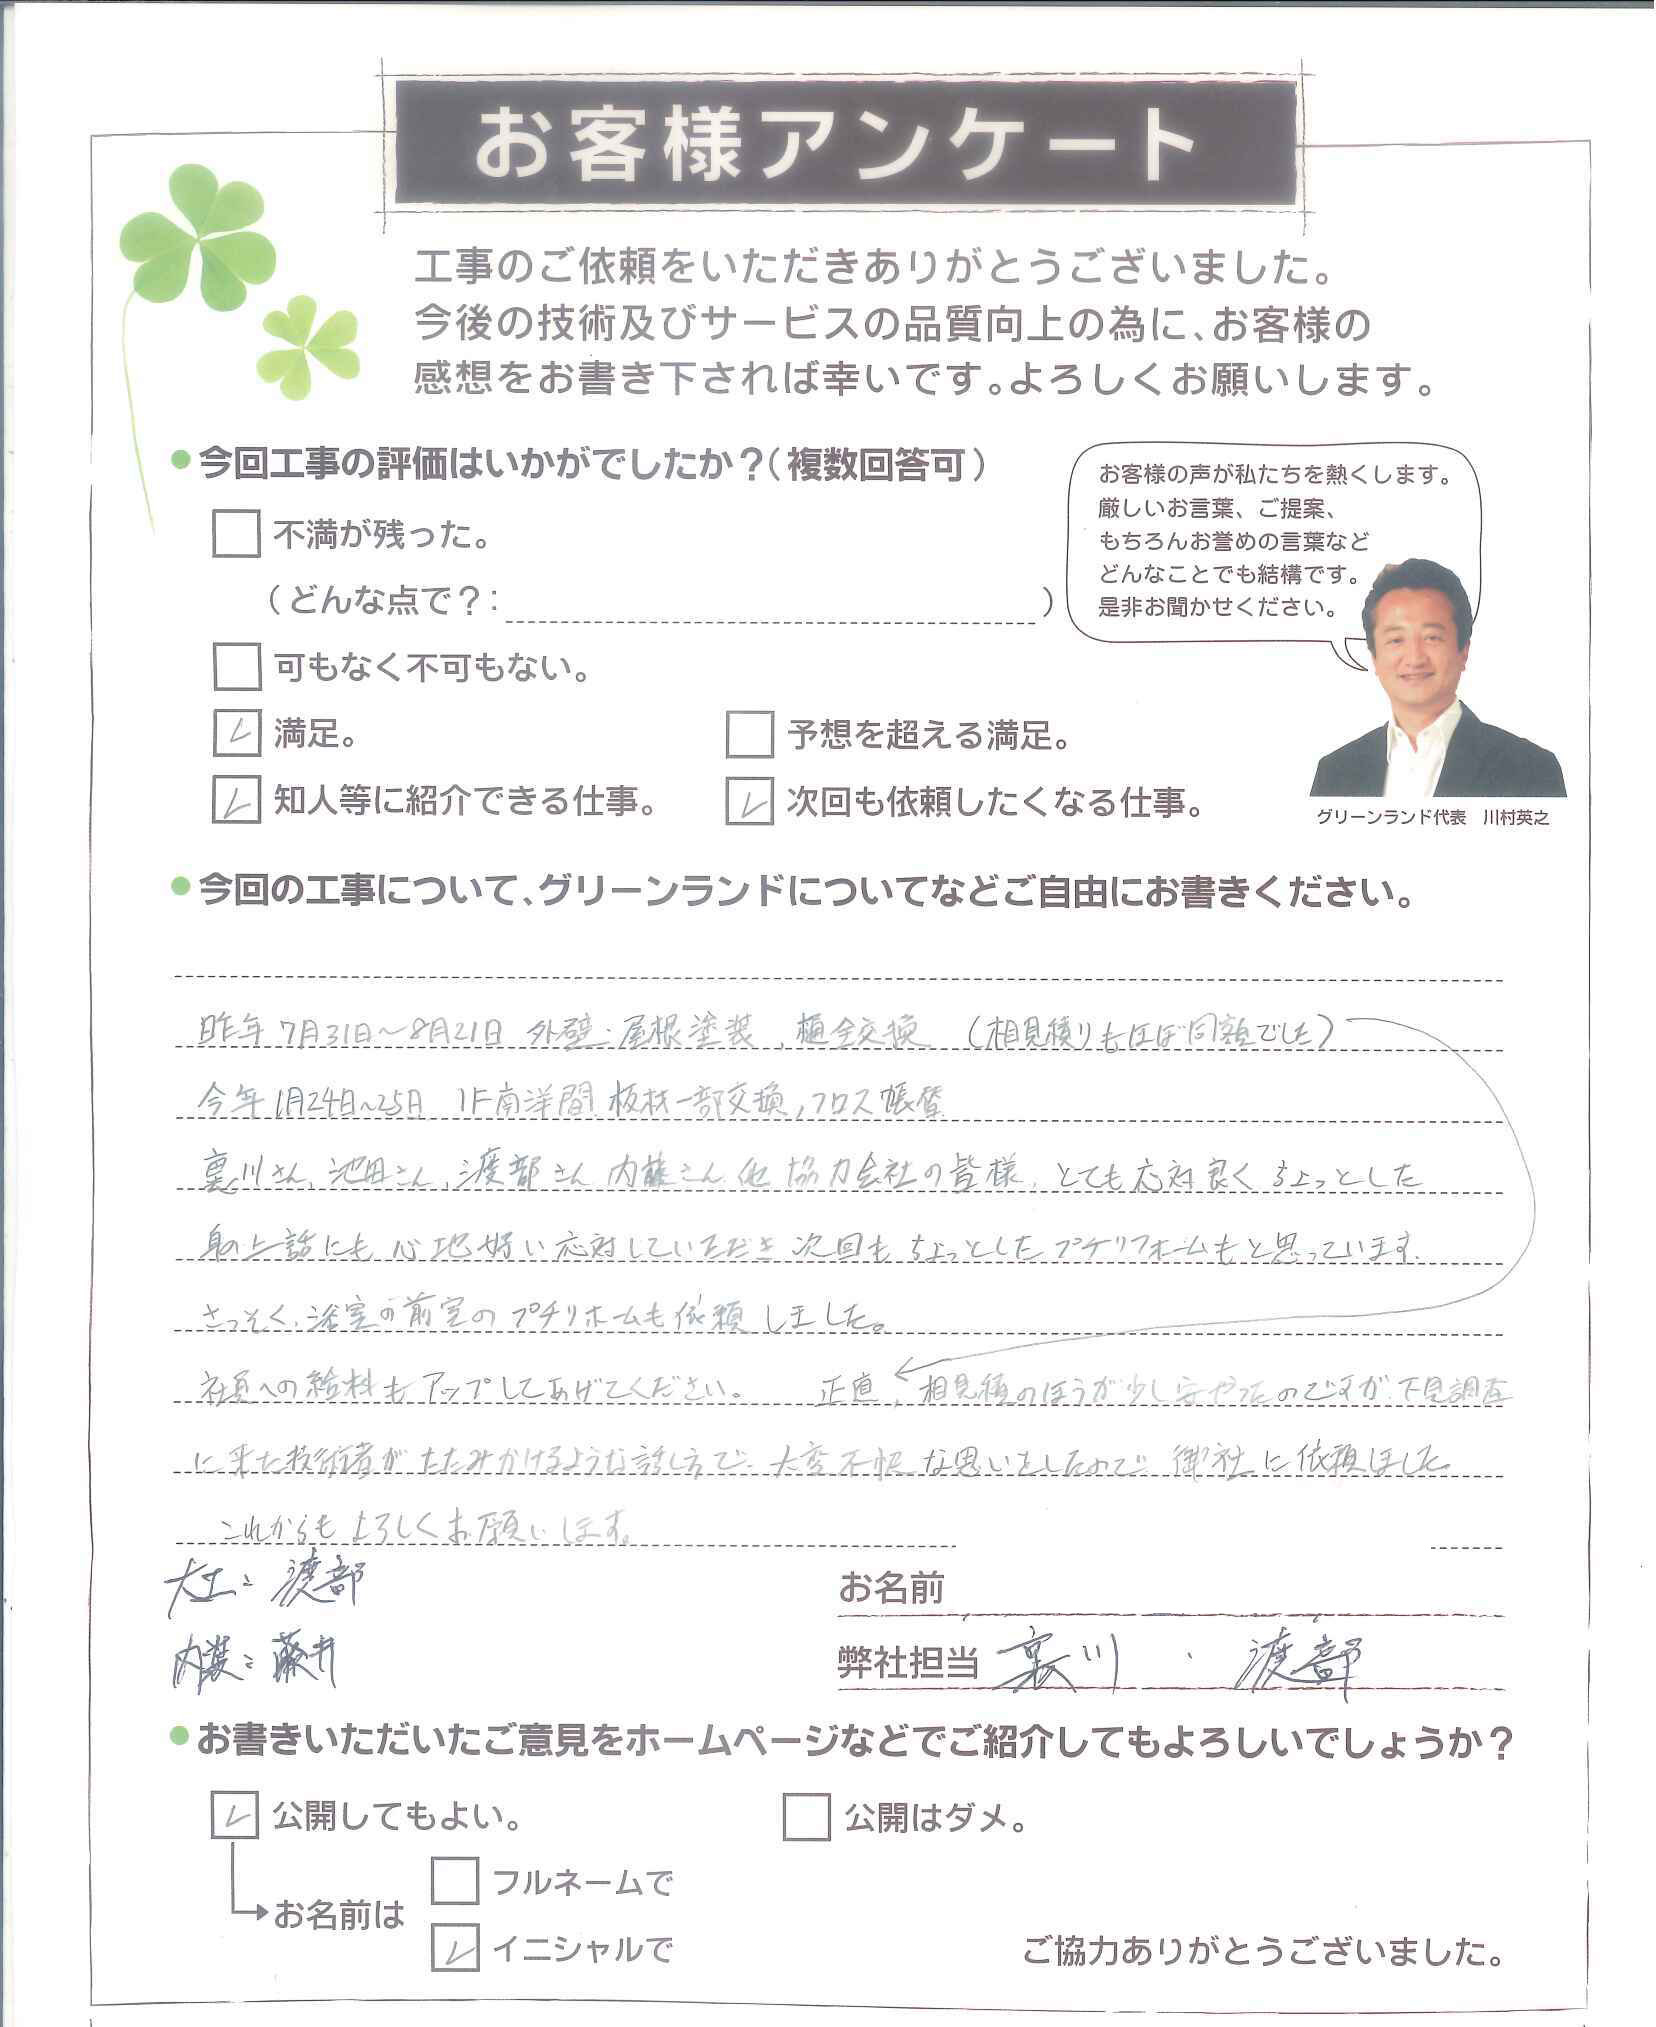 お客様アンケート
工事のご依頼をいただきありがとうございました。
今後の技術及びサービスの品質向上の為に、お客様の
感想をお書き下されば幸いです。よろしくお願いします。
今回工事の評価はいかがでしたか？（複数回答可）
お客様の声が私たちを熱くします。
厳しいお言葉、ご提案、
もちろんお誉めの言葉など
どんなことでも結構です。
是非お聞かせください。
不満が残った。
（どんな点で？：　）
可もなく不可もない。
満足。
予想を超える満足。
知人等に紹介できる仕事。
次回も依頼したくなる仕事。
グリーンランド代表　川村英之
今回の工事について、グリーンランドについてなどご自由にお書きください。
昨年 7月31日～8月21日 外壁・屋根塗装、樋全交換 （相見積りもほぼ同額でした）
今年1月24日～25日 1F南洋間 板材一部交換，クロス張替
裏川さん、池田さん、渡部さん 内藤さん 他 協力会社の皆様、とても応対良く ちょっとした
身の上話にも 心地好い応対していただき 次回も ちょっとしたプチリフォームもと思っています。
さっそく、浴室の前室の プチリホームも依頼しました。
社員への給料も アップしてあげてください。 正直、相見積のほうが少し安やったのですが、下見調査
に来た技術者が たたみかけるような話し方で、大変不快な思いをしたので 御社に依頼しました。
これからも よろしくお願いします。
大工：渡部
内装：藤井
お名前
弊社担当 裏川 ・ 渡部
お書きいただいたご意見をホームページなどでご紹介してもよろしいでしょうか？
公開してもよい。
公開はダメ。
お名前は
フルネームで
イニシャルで
ご協力ありがとうございました。